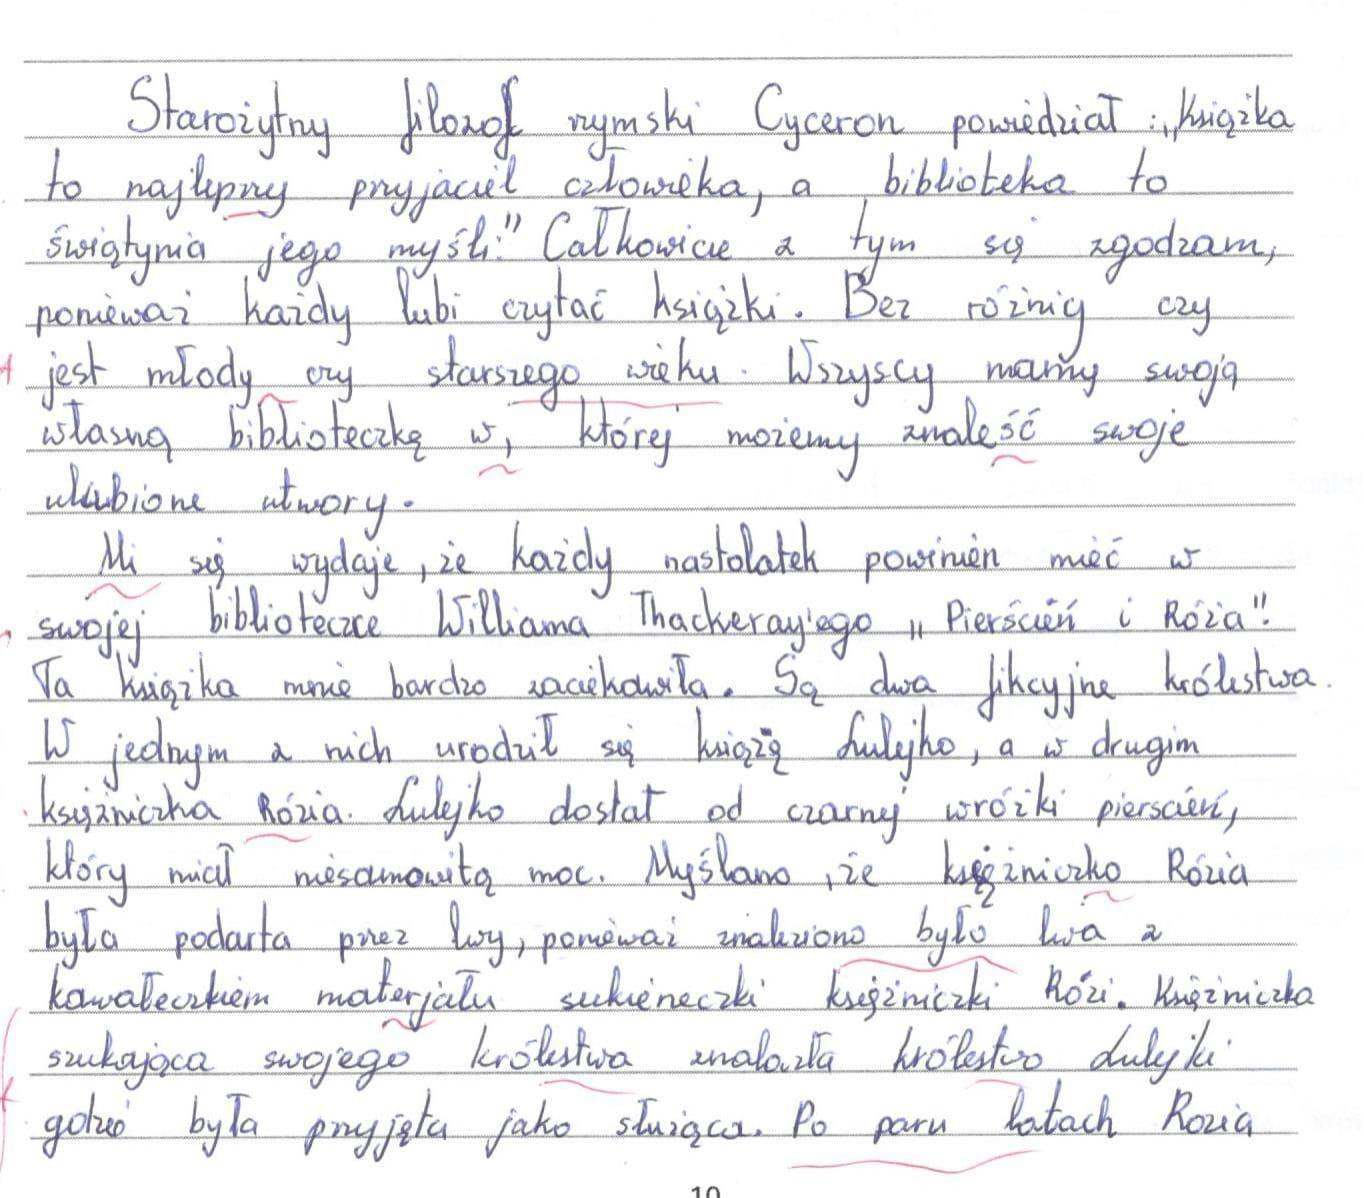 Starożytny filozof rzymski Cyceron powiedział : „Książka
to najlepszy przyjaciel człowieka, a biblioteka to
świątynia jego myśli." Całkowicie z tym się zgodzam,
ponieważ każdy lubi czytać książki. Bez różnicy czy
jest młody czy starszego wieku. Wszyscy mamy swoją
własną biblioteczką w, której możemy znaleść swoje
ulubione utwory.
Mi się wydaje, że każdy nastolatek powinien mieć w
swojej biblioteczce Williama Thackeray'ego „Pierścień i Róża".
Ta książka mnie bardzo zaciekawiła. Są dwa fikcyjne królestwa.
W jednym z nich urodził się książę Lulejko, a w drugim
księżniczka Rózia. Lulejko dostał od czarnej wróżki pierscień,
który miał niesamowitą moc. Myślano, że księżniczko Rózia
była podarta przez lwy, ponieważ znaleziono było lwa z
kawałeczkiem materjału sukieneczki księżniczki Rózi. Księżniczka
szukająca swojego królestwa znalazła królestwo Lulejki
gdzie była przyjęta jako służąca. Po paru latach Rozia
10